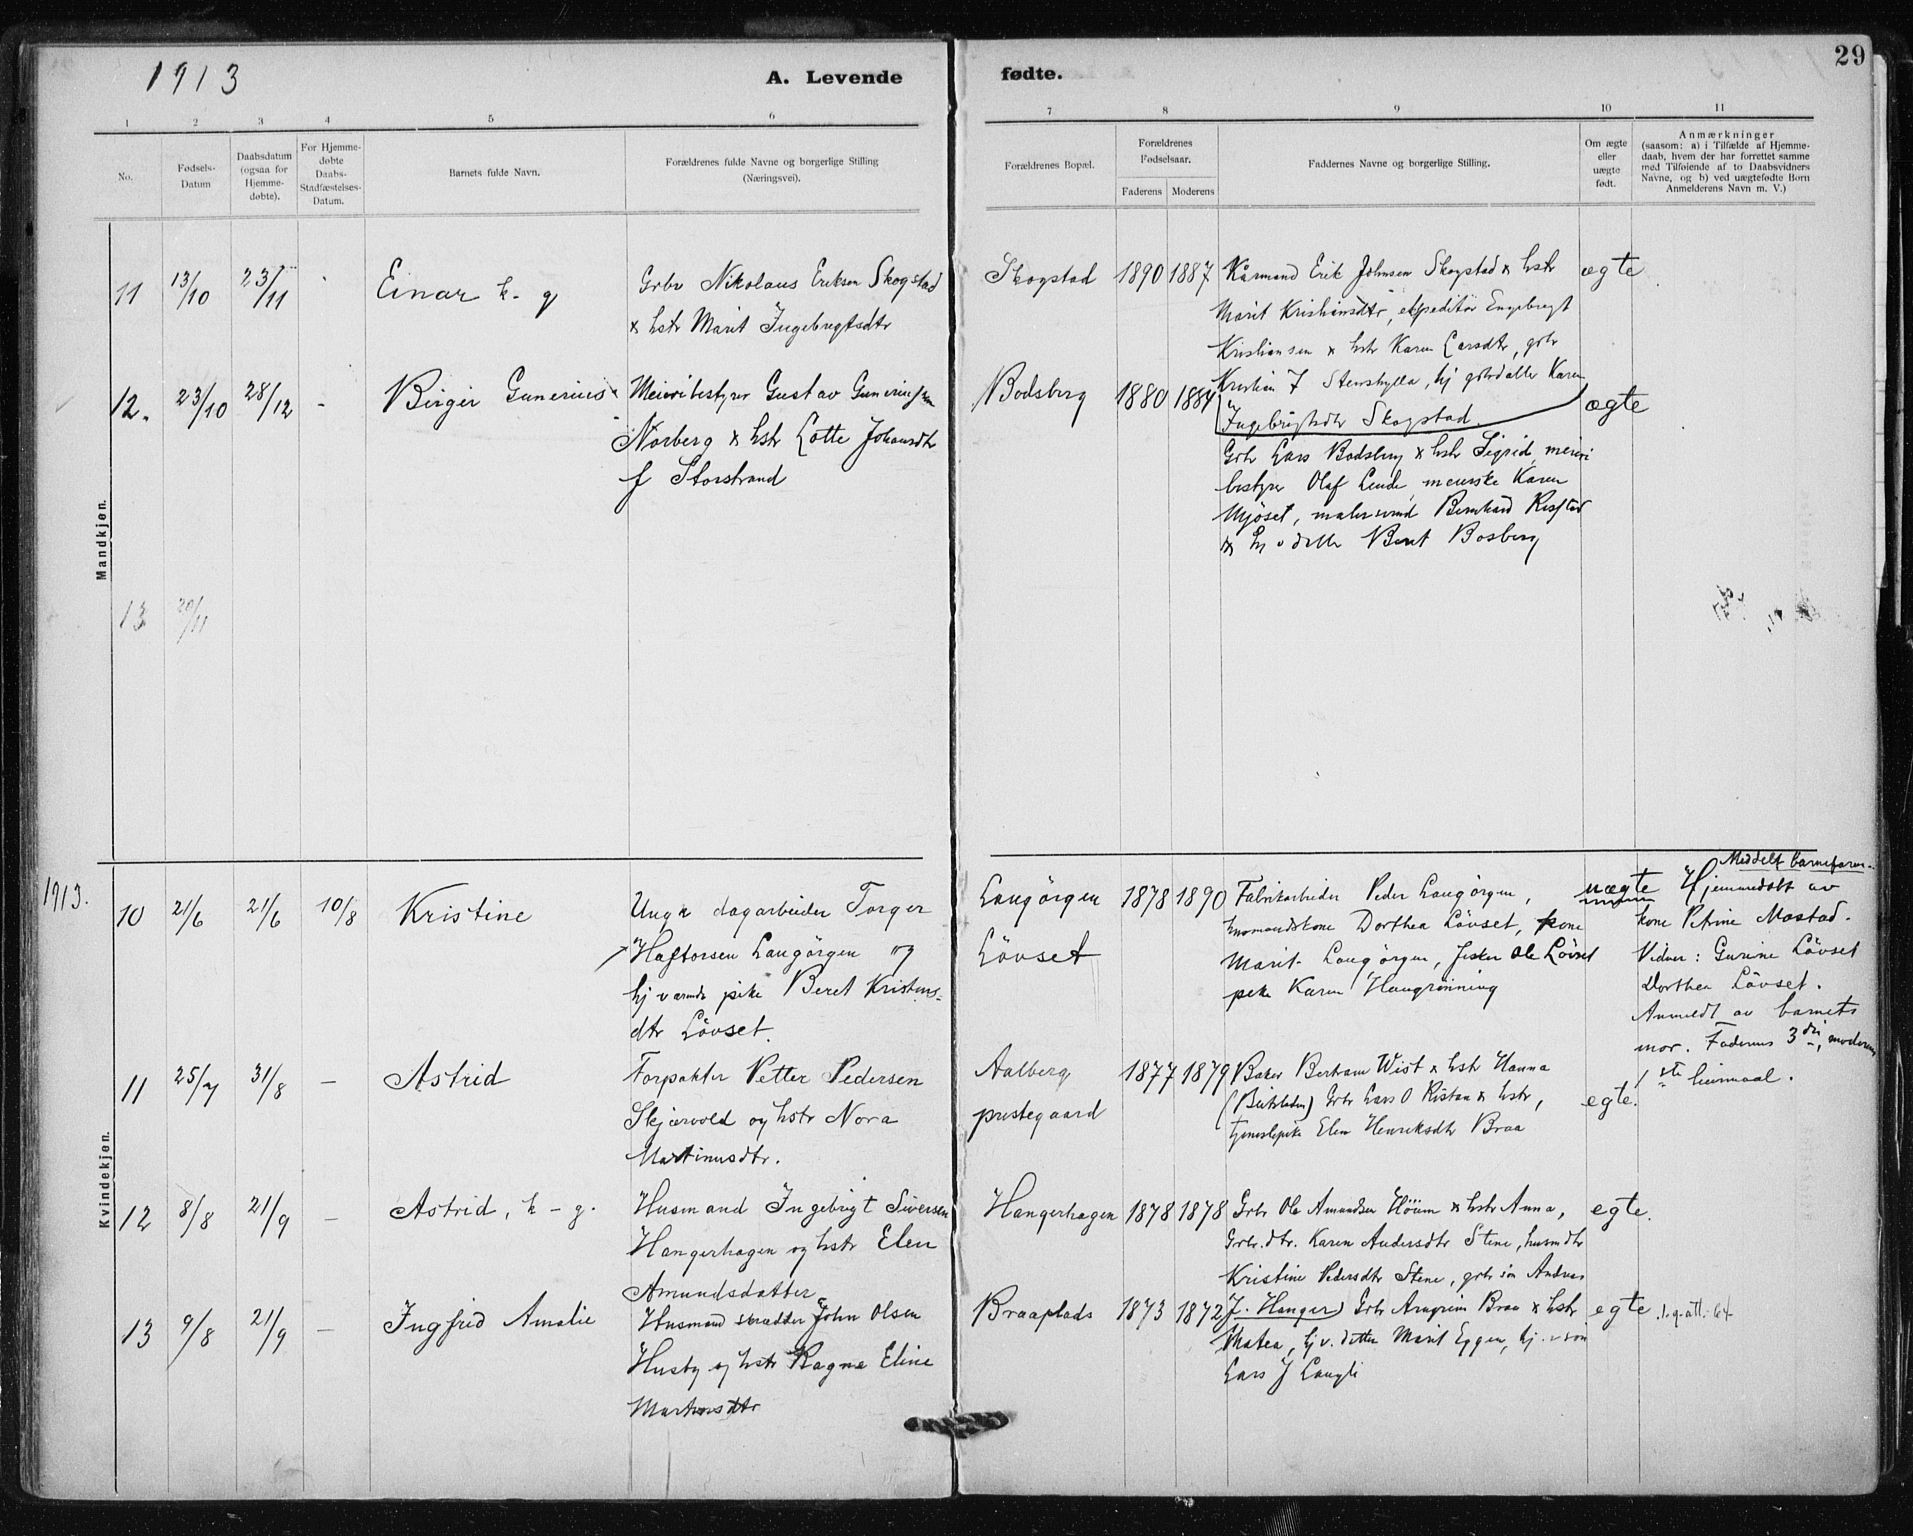 1913
A. Levende
fødte.
29
1 2 3 4 5 6 7 8 9 10 11
No.
Fødsels-
Datum
Daabsdatum
(ogsaa for
Hjemme-
døbte).
For Hjemme-
døbte
Daabs-
Stadfæstelses-
Datum.
Barnets fulde Navn.
Forældrenes fulde Navne og borgerlige Stilling
(Næringsvei).
Forældrenes Bopæl.
Forældrenes
Fødselsaar.
Faderens Moderens
Faddernes Navne og borgerlige Stilling.
Om ægte
eller
uægte
født.
Anmærkninger
(saasom: a) i Tilfælde af Hjemme-
daab, hvem der har forrettet samme
med Tilføiende af to Daabsvidners
Navne, og b) ved uægtefødte Børn
Anmelderens Navn m. V.)
Mandkjøn.
11 13/10 23/11
Einar k - g
Grbr Nikolaus Eriksen Skogstad
& hstr Marit Ingebregtsdtr
Skogstad 1890 1887
Kårmand Erik Johnsen Skogstad & hstr
Marit Kristiansdtr, ekspeditør Engebregt
Kristiansen & hstr Karen Larsdtr, grbr
Kristian J Stenshylla, hj grbrdatte Karen
Ingebrigtsdtr Skogstad.
ægte
12. 23/10 28/12 -
Birger Gunerius
Meieribestyrer Gustav Guneriussen
Norberg & hstr Lotte Johansdtr
f Storstrand
Bodsberg 1880 1884
Grbr Lars Bodsberg & hstr Sigrid, meieri
bestyrer Olaf Lende, meierske Karen
Mjøset, malersvend Bernhard
& hj v datter Beret Bosberg
ægte
13 20/11
1913.
Kvindekjøn.
10 21/6 21/6 10/8
Kristine
Ungk dagarbeider Torger
Haftorsen Langørgen og
hj værende pike Beret Kristens-
dtr Løvset.
Langørgen 1878 1890
Løvset
Fabrikarbeider Peder Langørgen,
husmandskone Dorthea Løvset, kone
Marit Langørgen, fisker Ole Løvset
pike Karen Haugrønning
uægte
Meddelt barnefaren.
Hjemmedøbt av
kone Petrine Mostad.
Vidner: Gurine Løvset
Dorthea Løvset.
Anmeldt av barnets
mor. Faderens 3die, moderens
1ste leiermaal.
11 25/7 31/8 -
Astrid
Forpakter Petter Pedersen
Skjærvold og hstr Nora
Martinusdtr.
Aalberg 1877 1879
prestegaard
Baker Bertram Wist & hstr Hanna
(Beitstaden) Grbr Lars O Ristan & hstr,
tjenestepike Elen Henriksdtr Braa
egte.
12 8/8 21/9 -
Astrid, k - g.
Husmand Ingebrigt Siversen
Hangerhagen og hstr Elen
Amundsdatter
Hangerhagen 1878 1878
Grbr Ole Amundsen Høium & hstr Anna,
Grbr.dtr. Karen Andersdtr Stene, husmdtr
Kristine Pedersdtr Stene, grbr søn Andreas
J. Hanger)
egte.
13 9/8 21/9 -
Ingfrid Amalie
Husmand skrædder John Olsen
Husby og hstr Ragna Eline
Martinusdtr
Braaplads 1873 1872
Grbr Arngrim Braa & hstr
Matea, hj v. datter Marit Eggen, hj. v søn
Lars J Langli
egte